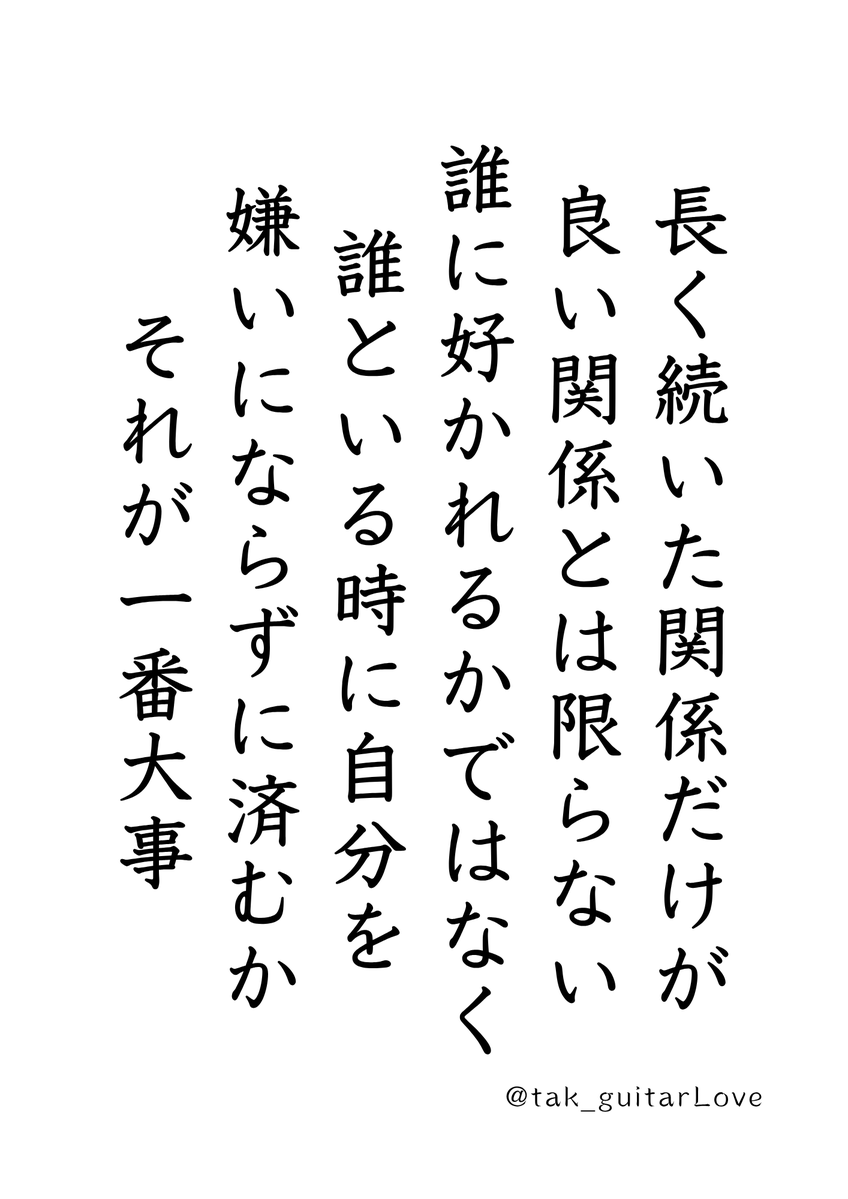 長く続いた関係だけが
良い関係とは限らない
誰に好かれるかではなく
誰といる時に自分を
嫌いにならずに済むか
それが一番大事
@tak_guitarLove